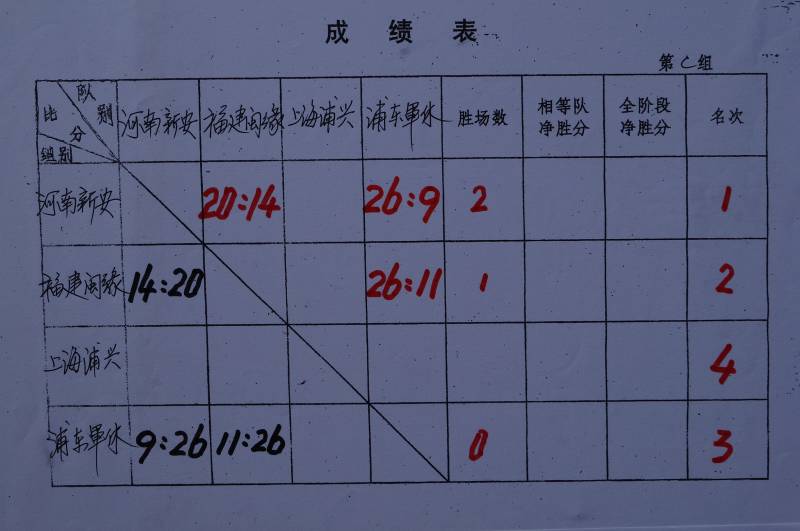 成 绩 表
第 C 组
队别
比分
组别
河南新安 福建闽缘 上海浦兴 浦东軍休 胜场数 相等队净胜分 全阶段净胜分 名次
河南新安 20:14 26:9 2 1
福建闽缘 14:20 26:11 1 2
上海浦兴 4
浦东軍休 9:26 11:26 0 3